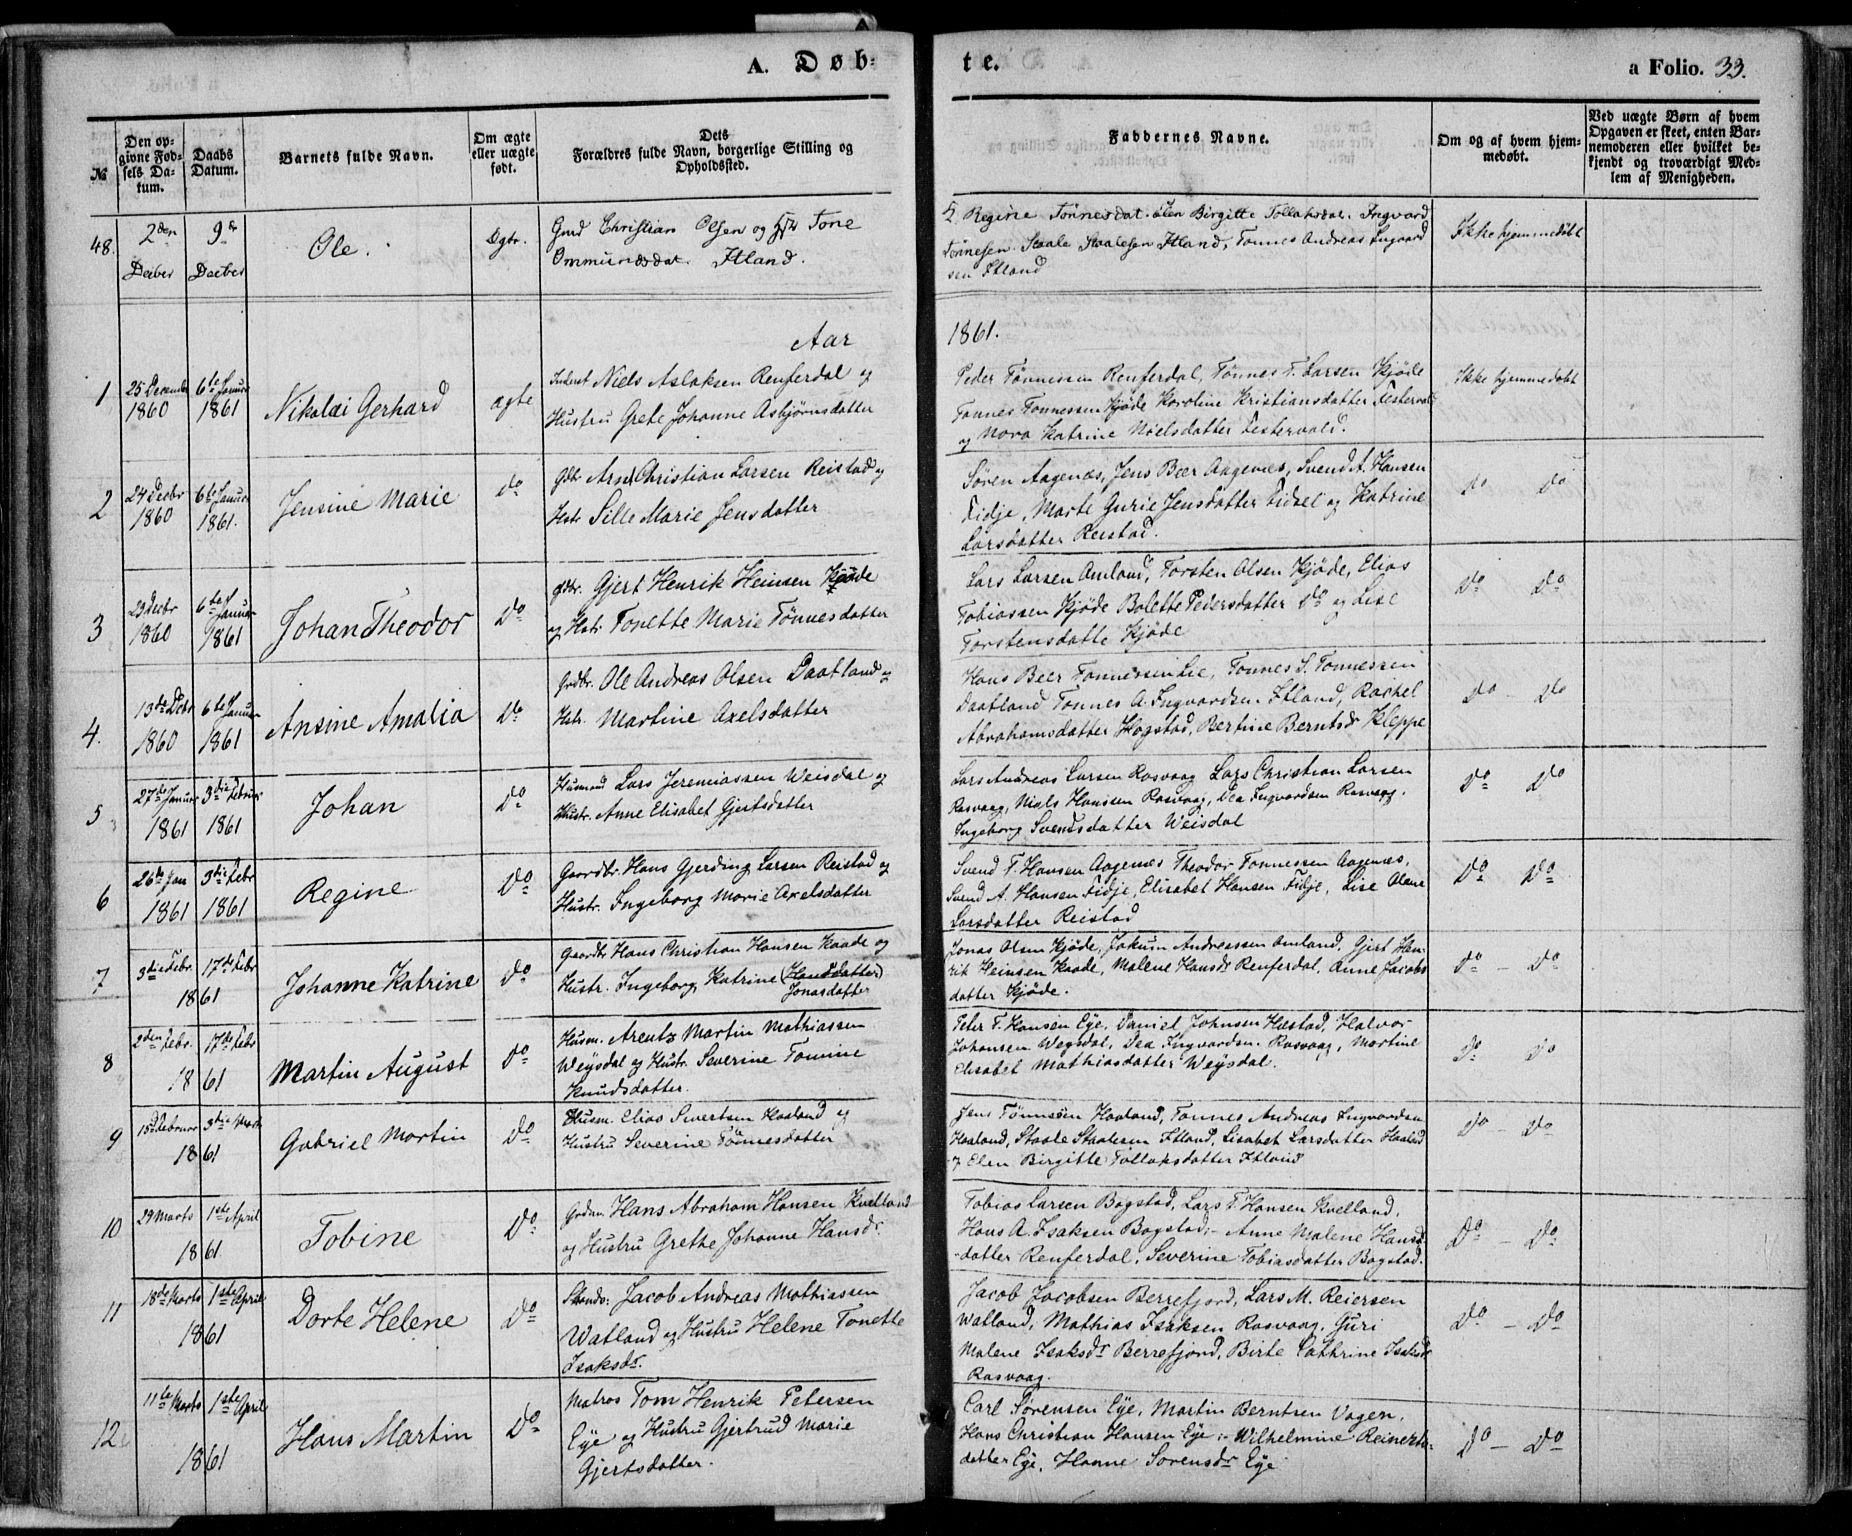 A. Døb-
te.
a Folio. 33.
№
Den op-
givne Fød-
sels Da-
tum.
Daabs
Datum.
Barnets fulde Navn.
Om ægte
eller uægte
født.
Dets
Forældres fulde Navn, borgerlige Stilling og
Opholdssted.
Faddernes Navne.
Om og af hvem hjem-
medøbt.
Ved uægte Børn af hvem
Opgaven er skeet, enten Bar-
nemoderen eller hvilket be-
kjendt og troværdigt Med-
lem af Menigheden.
48.
2den
Decber
9de
Decber
Ole.
Ægte.
Gmd Christian Olsen og Hst Tone
Ommundsdat. Itland.
Regine Tønnesdat. Elen Birgitte Tollaksdat. Ingvard
Tønnesen. Staale Staalesen Itland, Tønnes Andreas Ingvard
sen Itland
Ikke hjemmedøbt
Aar
1861.
1
25 December
1860
6te Januar
1861
Nikolai Gerhard
ægte
Inderst Niels Aslaksen Renferdal og
Hustru Grete Johanne Asbjørnsdatter
Peder Tønnessen Renferdal, Tønnes T. Larsen Kjøde
Tønnes Tønnessen Kjøde Karoline Kristiansdatter Festervold
og Nora Katrine Nielsdatter Festervold.
Ikke hjemmedøbt
2
24 Decbr
1860
6te Januar
1861.
Jensine Marie
do
Gbr Arne Christian Larsen Reistad og
Hst. Sille Marie Jensdatter
Søren Aagenæs, Jens Beer Aagenæs, Svend A. Hansen
Fidje, Marte Gurie Jensdatter Fidsel og Katrine
Larsdatter Reistad.
do do
3
29 Decbr
1860
6te Januar
1861
Johan Theodor
Do
Gbr. Gjert Henrik Heinsen Kjøde
og Hst. Tonette Marie Tønnesdatter
Lars Larsen Amland, Torsten Olsen Kjøde, Elias
Tobiassen Kjøde Bolette Pedersdatter do og Lise
Torstensdatte Kjøde
Do Do
4.
13de Debr
1860
6te Januar
1861
Ansine Amalia
Do
Grdbr. Ole Andreas Olsen Daatland og
Hst. Martine Axelsdatter
Hans Beer Tønnessen Lie, Tønnes S. Tønnessen
Daatland Tønnes A. Ingvardsen Itland, Rachel
Abrahamsdatter Hogstad, Bertine Berntsdr Kleppe
Do - Do
5
27de Januar
1861
3die Februar
1861
Johan
Do
Husmd Lars Jeremiassen Weisdal og
Hustr. Anne Elisabet Gjertsdatter
Lars Andreas Larsen Rasvaag Lars Christian Larsen
Rasvaag, Niels Hansen Rasvaag, Dea Ingvardsen Rasvaag.
Ingeborg Svendsdatter Weisdal
Do Do
6
26de Jan
1861
3die Febr
1861
Regine
Do
Gaardbr. Hans Gjerding Larsen Reistad og
Hustr. Ingeborg Marie Axelsdatter
Svend T. Hansen Aagenæs Theodor Tønnessen Aagenæs,
Svend A. Hansen Fidje, Elisabet Hansen Fidje, Lise Olene
Larsdatter Reistad
Do Do
7
3die Febr.
17de Febr
1861
Johanne Katrine
Do
Gaardbr Hans Christian Hansen Kaade og
Hustr. Ingeborg Katrine (Hansdatter)
Jonasdatter
Jonas Olsen Kjøde, Jokum Andreassen Amland, Gjert Hen-
rik Heinsen Kaade, Malene Hansdr Renferdal, Anne Jacobs
datter Kjøde.
Do - Do
8
2den Febr.
17de Febr
1861
Martin August
Do
Husm. Arent Martin Mathiassen
Weysdal og Hustr. Severine Tomine
Knudsdatter.
Peter T. Hansen Eye, Daniel Johnsen Hæstad, Halvor
Johansen Wegsdal, Dea Ingvardsen Rasvaag, Martine
Elisabet Mathiasdatter Weysdal.
Do Do
9
15 Februar
3die Marts
1861
Gabriel Martin
Do
Husm. Elias Sivertsen Haaland og
Hustru Severine Tønnesdatter
Jens Tønnesen Haaland, Tønnes Andreas Ingvardsen
Haaland, Staale Staalesen Itland, Lisabet Larsdatter Haaland
og Elen Birgitte Tollaksdatter Itland
Do - Do
10
29 Marts
1ste April
1861
Tobine
Do
Grdm. Hans Abraham Hansen Kvelland
og Hustru Grethe Johanne Hansdr.
Tobias Larsen Bagstad, Lars T. Hansen Kvelland,
Hans A. Isaksen Bagstad, - Anne Malene Hans
-datter Renferdal, Severine Tobiasdatter Bagstad.
Do - Do
11
18de Marts
1ste April
1861
Dorte Helene
Do
Jacob Andreas Mathiassen
Watland og Hustru Helene Tonette
Isaksdr.
Jacob Jacobsen Berrefjord, Lars M. Reiersen
Watland, Mathias Isaksen Rasvaag, Guri
Malene Isaksdr Berrefjord, Birte Cathrine Isaksdr
Rasvaag.
Do - Do
12
11te Marts
1ste April
1861
Hans Martin
Do
Matros Tom Henrik Petersen
Eye og Hustru Gjertrud Marie
Gjertsdatter.
Carl Sørensen Eye, Martin Berntsen Vagen,
Hans Christian Hansen Eye, - Wilhelmine Reinerts-
datter Eye, Hanne Sørensdr Eye
Do - Do